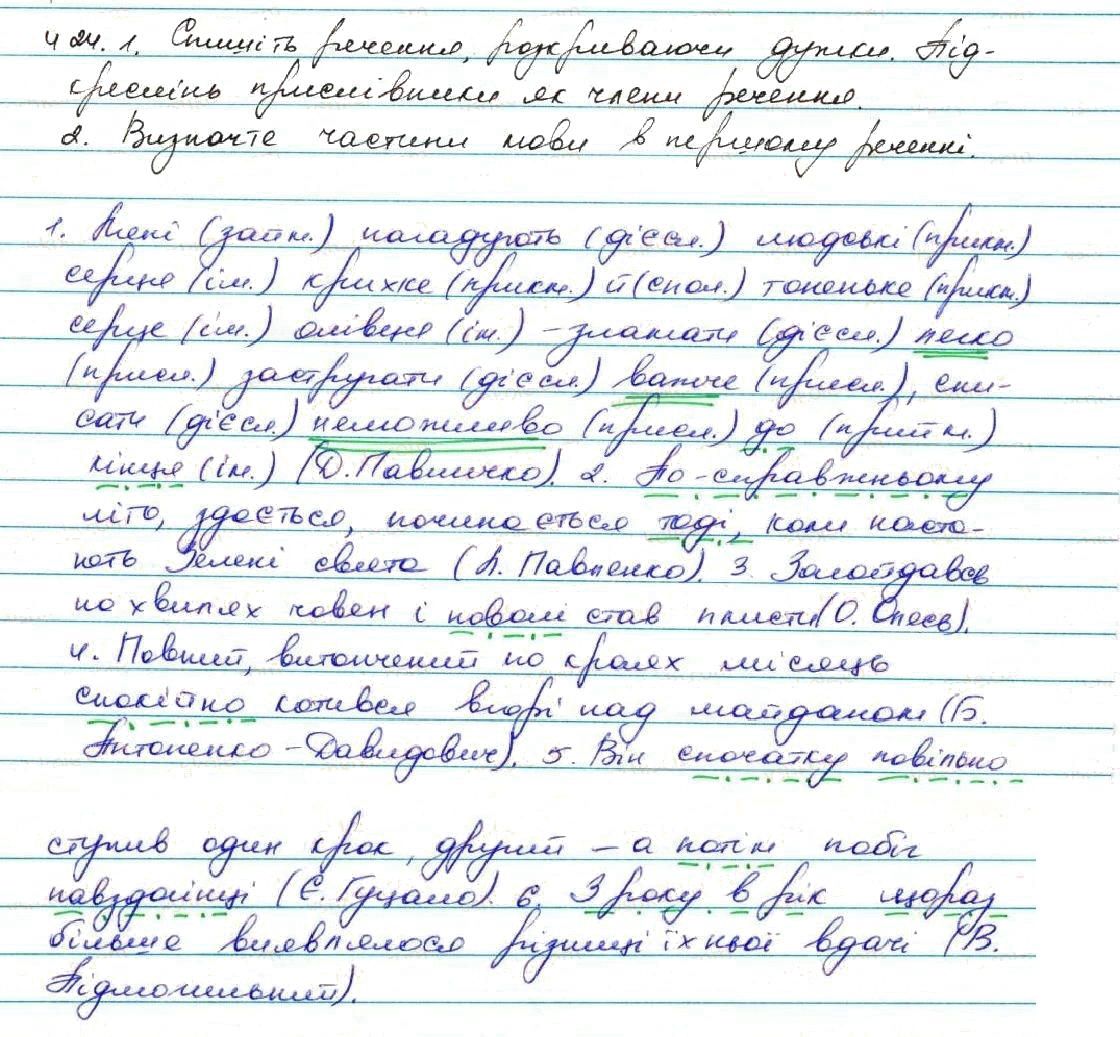 424. 1. Спишіть речення, розкриваючи дужки. Під-
кресліть прислівники як члени речення.
2. Визначте частини мови в першому реченні.
1. Мені (займ.) нагадують (дієсл.) людські (прикм.)
серця (ім.) крихке (прикм.) й (спол.) тоненьке (прикм.)
серце (ім.) олівця (ім.) – зламати (дієсл.) легко
(присл.) застругати (дієсл.) важче (присл.), спи-
сати (дієсл.) неможливо (присл.) до (прийм.)
кінця (ім.) (Д. Павличко). 2. По-справжньому
літо, здається, починається тоді, коли наста-
ють Зелені свята (Л. Павленко). 3. Загойдавсь
на хвилях човен і поволі став плисти (О. Олесь).
4. Повний, витончений по краях місяць
спокійно котився вгорі над майданом (Б.
Антоненко-Давидович). 5. Він спочатку повільно
ступив один крок, другий – а потім побіг
навздогінці (Є. Гуцало). 6. З року в рік щораз
більше виявлялося різниці їхньої вдачі (В.
Підмогильний).